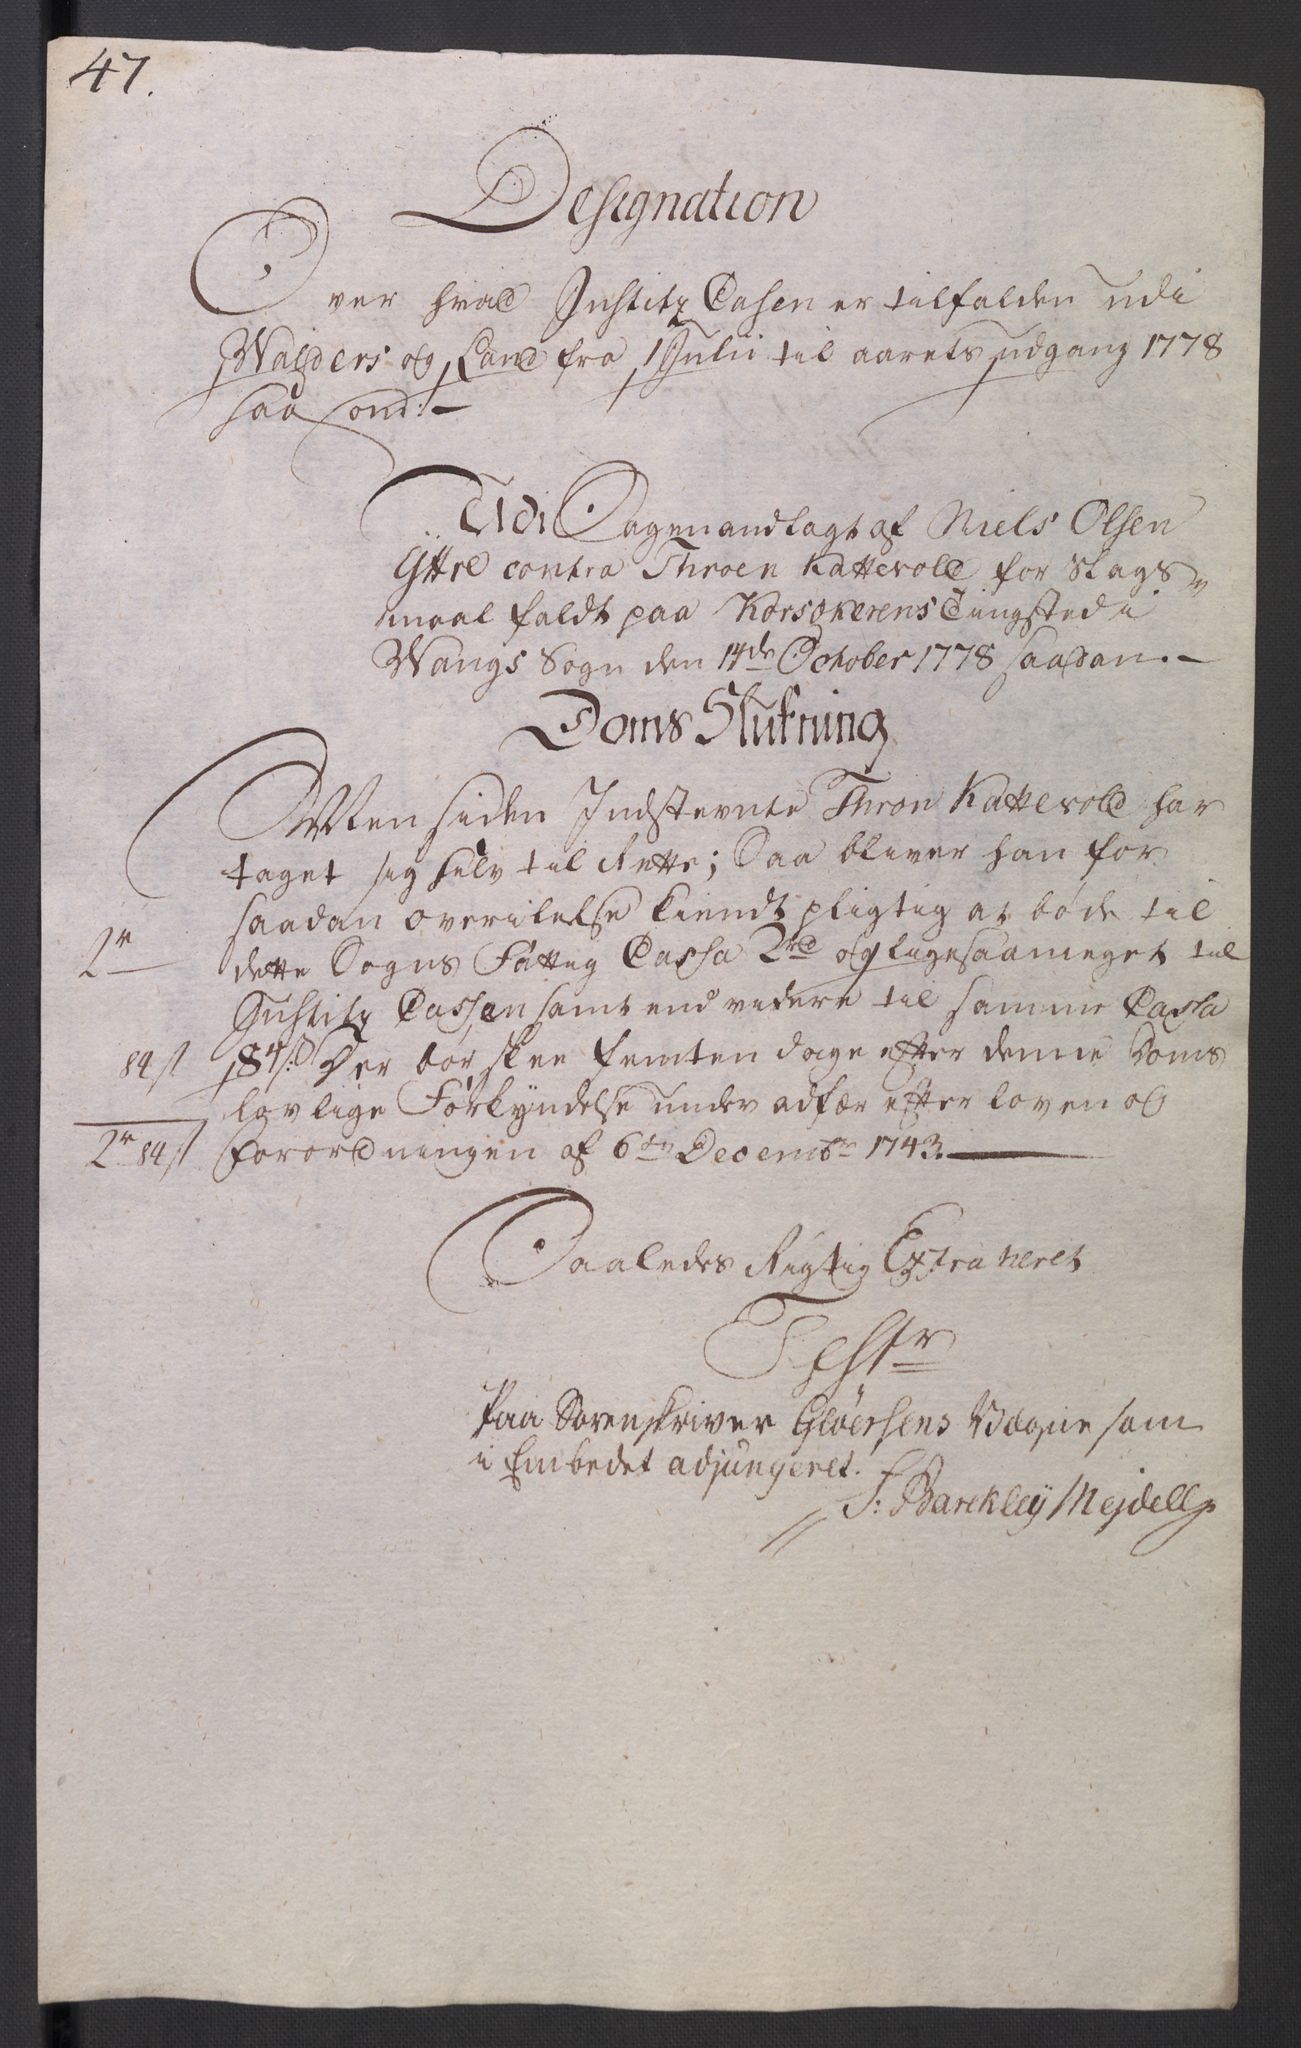 47.
Designation
Over hvad Justitz Casen er tilfalden udi
Walders og Land fra 1 Julii til aarets udgang 1778
saasom: -
Udi Sagen anlagt af Niels Olsen
Ÿttre contra Throen Kattevold for Slags
maal faldt paa Korsøkerens Tingsted i
Wangs Sogn den 14de October 1778 saadan. -
Doms Slutning
Men siden Indstevnte Thron Kattevold har
taget sig selv til Rette; Saa bliver han for
saadan overilelse kiendt pligtig at bøde til
2r dette Sogns Fattig Cassa 2rd og ligesaameget til
Justitz Cassen samt end videre til samme Cassa
84 s 84 s: Der bør skee femten dage efter denne Doms
lovlige Forkyndelse under adfær efter loven og
2r 84 s Forordningen af 6te Decembr 1743.
Saaledes Rigtig Extraheret
Testr
Paa Sorenskriver Gløersens Vegne som
i Embedet adjungeret.
J: Barckleÿ Mejdell